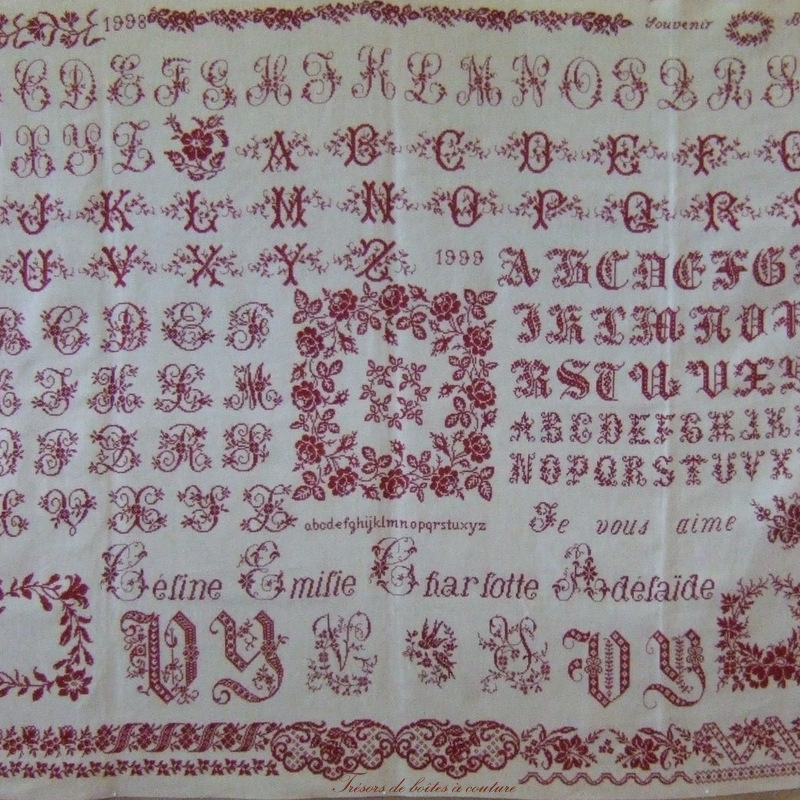 1998 Souvenir
C D E F G H I J K L M N O P Q R S
X Y Z A B C D E F G
J K L M N O P Q R S
U V X Y Z 1999 A B C D E F G
J K L M N O P
R S T U V X Y
B C D E F
I J K L M
A B C D E F G H I K
O P Q R S
N O P Q R S T U V X
U V X Y Z
abcdefghijklmnopqrstuxyz Je vous aime
Céline Emilie Charlotte Adélaïde
V Y N S V Y
Trésors de boîtes à couture